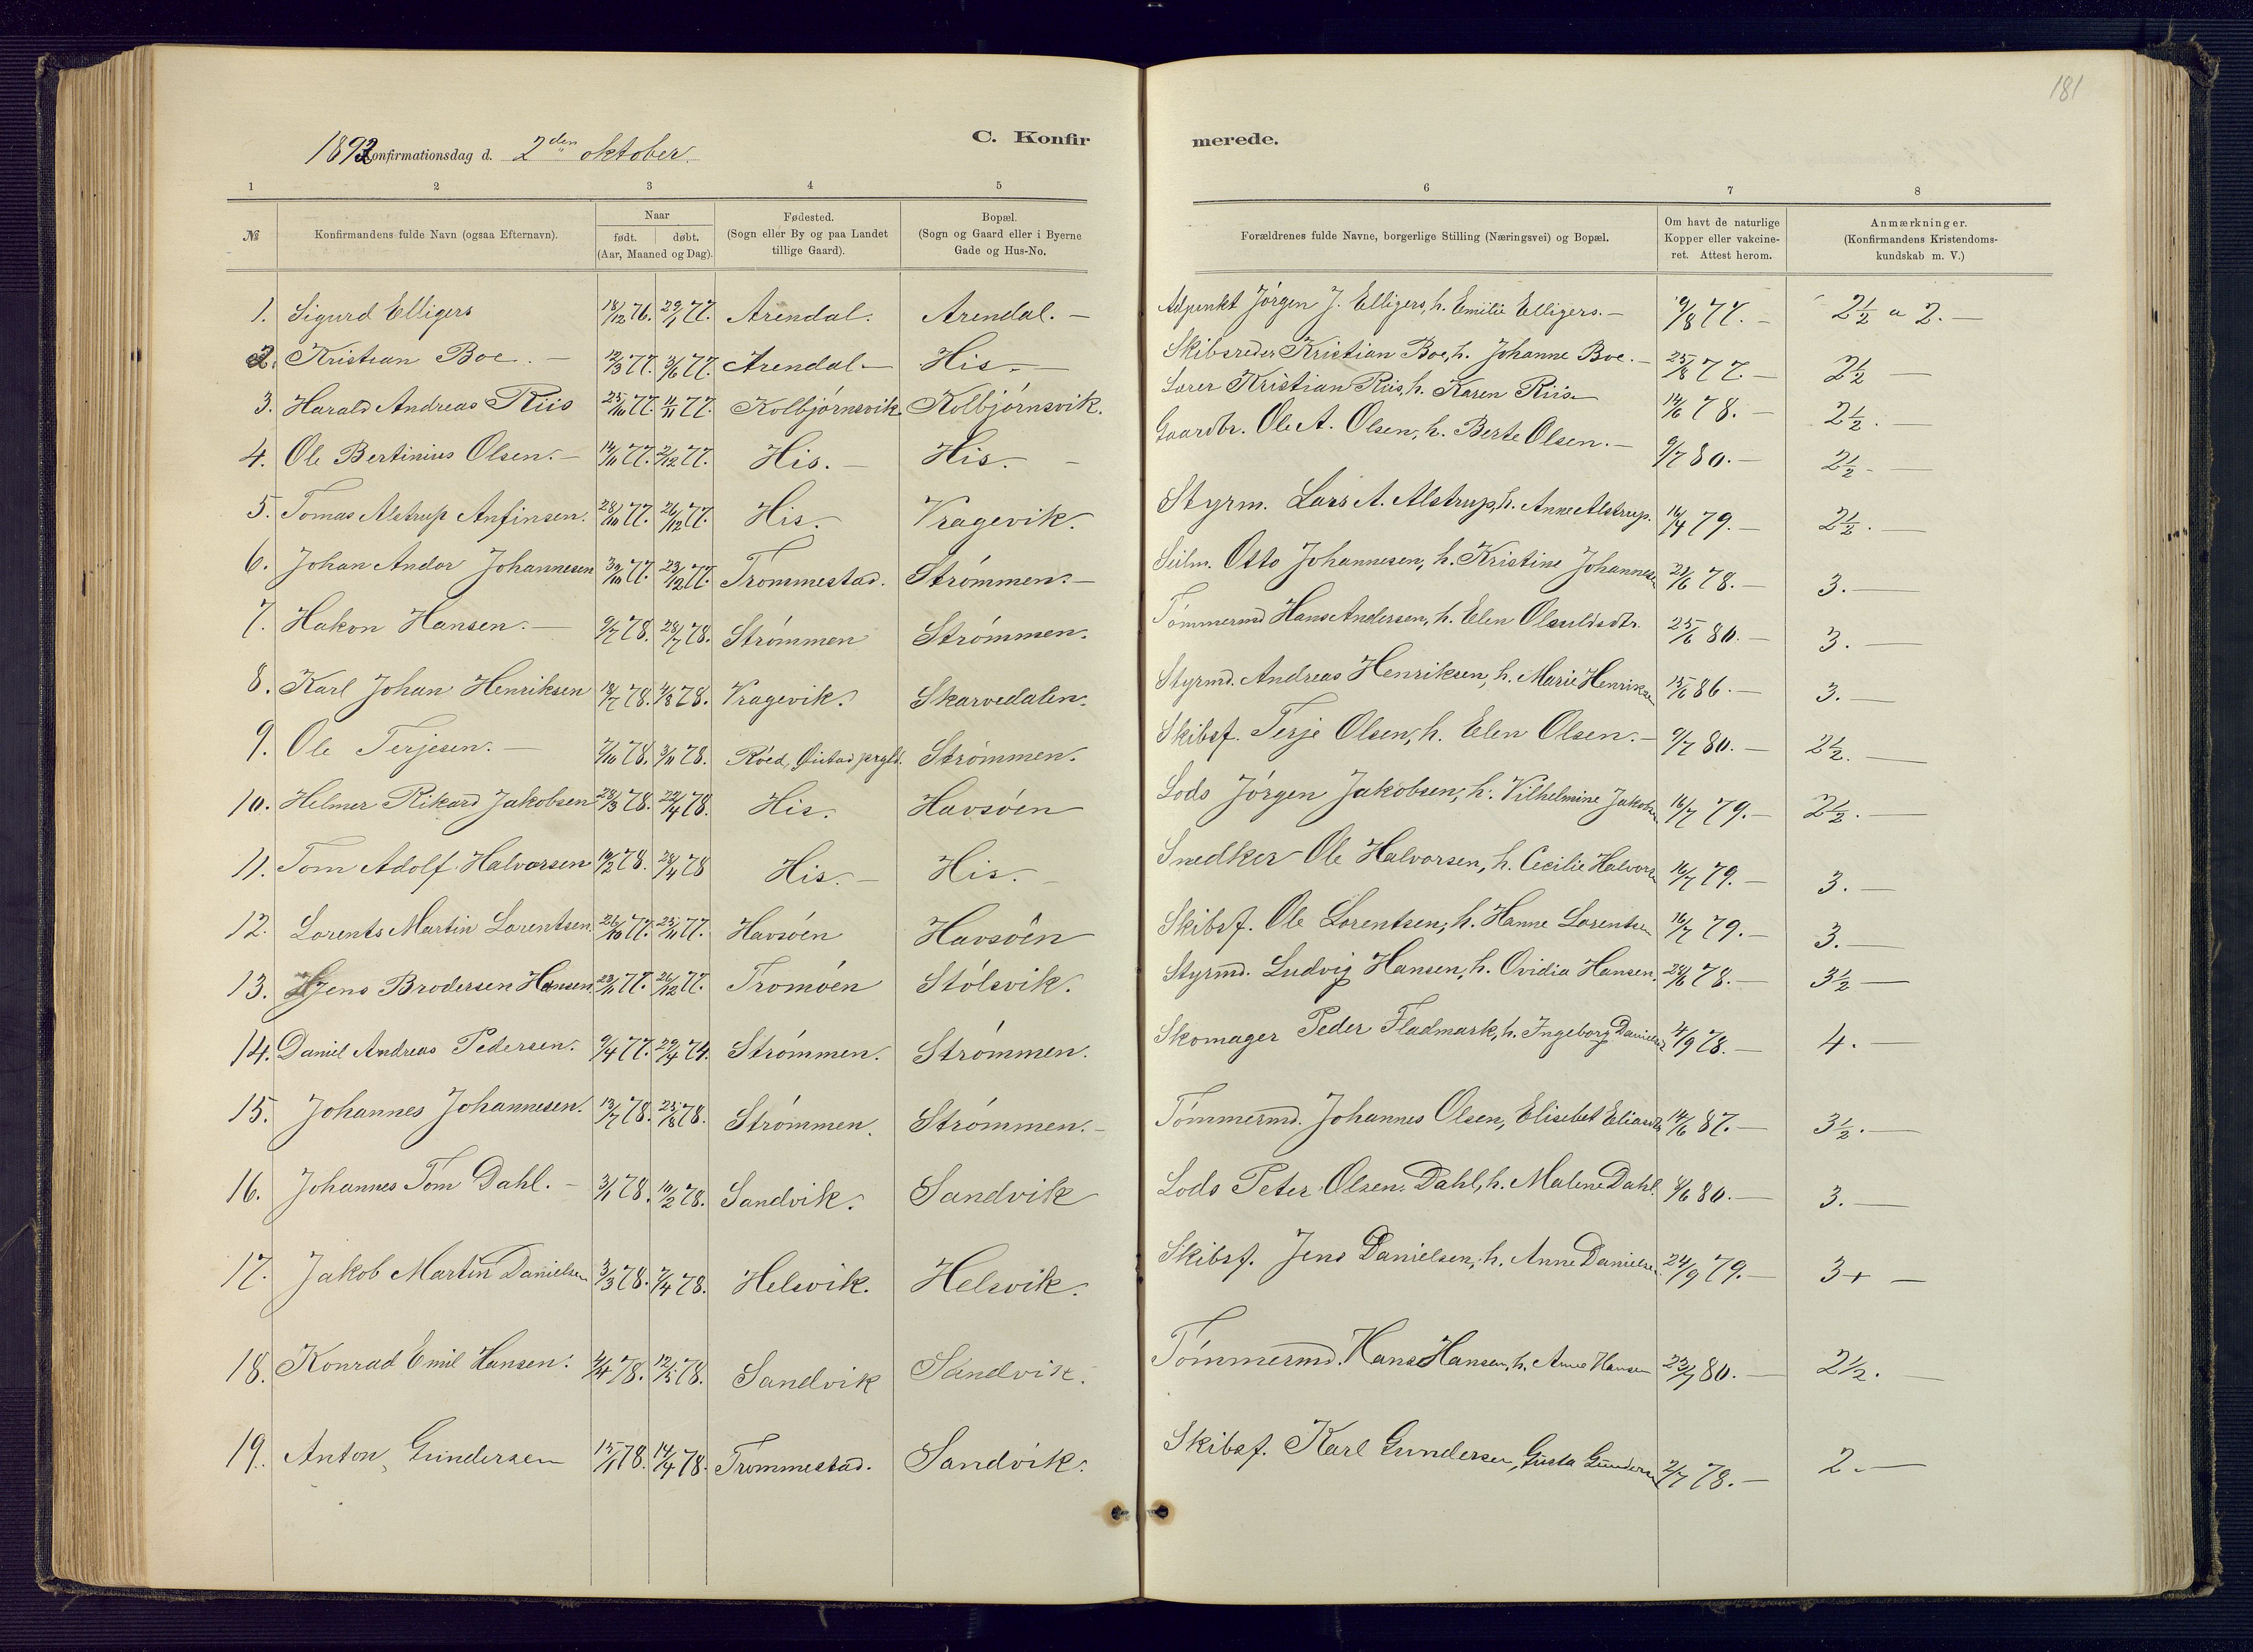 181
C. Konfirmerede.
1892 Konfirmationsdag d. 2den oktober.
1 2 3 4 5 6 7 8
№ Konfirmandens fulde Navn (ogsaa Efternavn). Naar født. døbt. (Aar, Maaned og Dag). Fødested. (Sogn eller By og paa Landet tillige Gaard). Bopæl. (Sogn og Gaard eller i Byerne Gade og Hus-No. Forældrenes fulde Navne, borgerlige Stilling (Næringsvei) og Bopæl. Om havt de naturlige Kopper eller vakcineret. Attest herom. Anmærkninger. (Konfirmandens Kristendomskundskab m. V.)
1. Sigurd Elligers 18/12 76. 29/1 77. Arendal. Arendal. — Adpunkt Jørgen J. Elligers, h. Emilie Elligers. — 9/8 77. — 2½ a 2. —
2. Kristian Boe. — 12/3 77. 3/6 77. Arendal — His. — Skibsreder Kristian Boe, h. Johanne Boe. — 25/8 77. — 2½ —
3. Harald Andreas Riis 23/10 77. 4/11 77. Kolbjørnsvik Kolbjørnsvik. Lærer Kristian Riis, h. Karen Riis. — 14/6 78. — 2½. —
4. Ole Bertinius Olsen. — 14/11 77. 2/12 77. His. — His. — Gaardbr. Ole A. Olsen, h. Berte Olsen. — 9/7 80. — 2½. —
5. Tomas Alstrup Anfinsen. 28/10 77. 26/12 77. His. Vragevik. Styrm. Lars A. Alstrup, h. Anne Alstrup. 16/4 79. — 2½. —
6. Johan Andor Johannesen 30/10 77. 23/12 77. Trommestad. Strømmen. — Seilm. Otto Johannesen, h. Kristine Johannesen 21/6 78. — 3. —
7. Hakon Hansen. — 9/7 78. 28/7 78. Strømmen Strømmen. Tømmermd Hans Andersen, h. Elen Olsuldsdtr. 25/6 80. — 3. —
8. Karl Johan Henriksen 18/7 78. 4/8 78. Vragevik. Skarvedalen. Styrmd. Andreas Henriksen, h. Marie Henriksen 15/6 86. — 3. —
9. Ole Terjesen. — 7/10 78. 3/11 78. Røed, Øiestad prgld. Strømmen. Skibsf. Terje Olsen, h. Elen Olsen. — 9/7 80. — 2½. —
10. Helmer Rikard Jakobsen 28/3 78. 22/4 78. His. Havsøen Lods Jørgen Jakobsen, h. Vilhelmine Jakobsen 16/7 79. — 2½. —
11. Tom Adolf Halvorsen 10/2 78. 28/4 78 His. — His. — Snedker Ole Halvorsen, h. Cecilie Halvorsen 16/7 79. — 3. —
12. Lorents Martin Lorentsen. 26/10 77. 25/11 77. Havsøen Havsøen Skibsf. Ole Lorentsen, h. Hanne Lorentsen 16/7 79. — 3. —
13. Jens Brodersen Hansen. 22/11 77. 26/12 77. Tromøen Stølsvik. Styrmd. Ludvig Hansen, h. Ovidia Hansen. 28/6 78. — 3½ —
14. Daniel Andreas Pedersen. 9/4 77. 29/4 74. Strømmen. Strømmen. Skomager Peder Fladmark, h. Ingeborg Danielsen 4/9 78. — 4. —
15. Johannes Johannesen. 13/7 78. 25/8 78. Strømmen. Strømmen. — Tømmermd. Johannes Olsen, Elisebet Eliasdtr. 14/6 87. — 3½. —
16. Johannes Tom Dahl. — 3/1 78. 10/2 78. Sandvik. Sandvik Lods Peter Olsen Dahl, h. Malene Dahl. 4/6 80. — 3. —
17. Jakob Martin Danielsen 3/3 78. 7/4 78. Helsvik. Helsvik. Skibsf. Jens Danielsen, h. Anne Danielsen. 24/9 79. — 3+ —
18. Konrad Emil Hansen. 4/4 78. 12/5 78. Sandvik Sandvik. Tømmermd. Hans Hansen, h. Anne Hansen 23/7 80. — 2½. —
19. Anton Gundersen 15/1 78. 14/4 78. Trommestad. Sandvik. Skibsf. Karl Gundersen, Gusta Gundersen 2/7 78. — 2. —